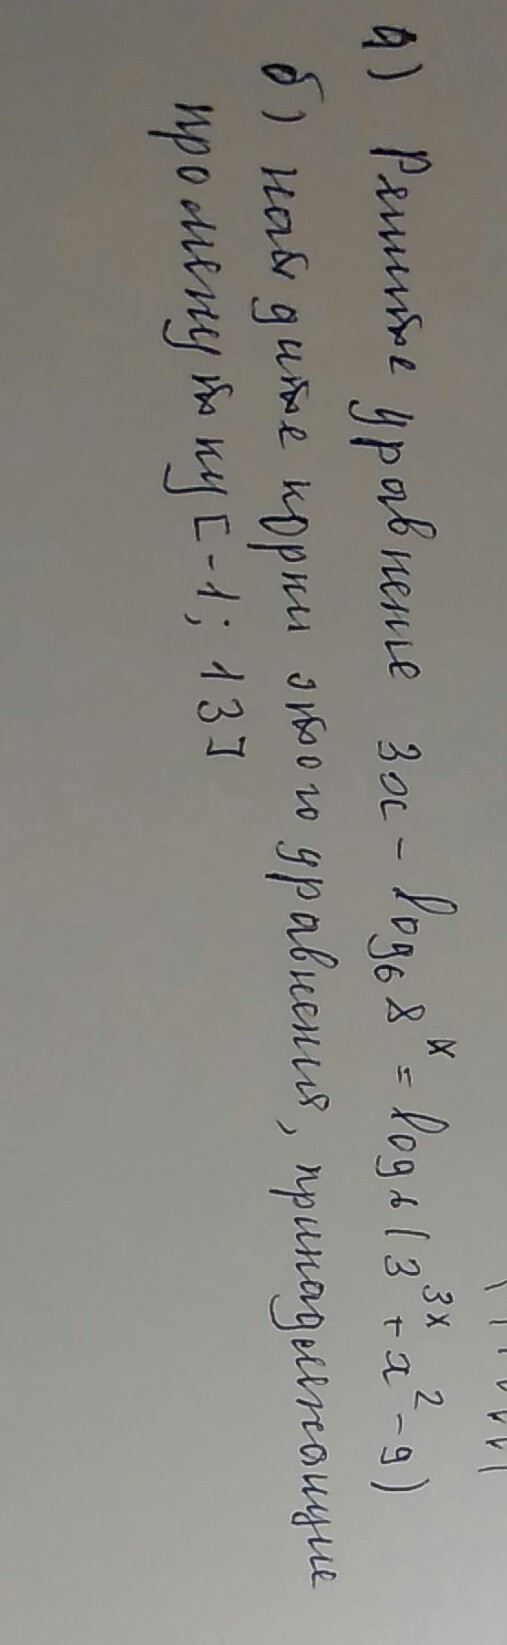 а) Решите уравнение 3x - log₆8ˣ = log₆(3³ˣ + x² - 9)
б) найдите корни этого уравнения, принадлежащие
промежутку [-1; 13]